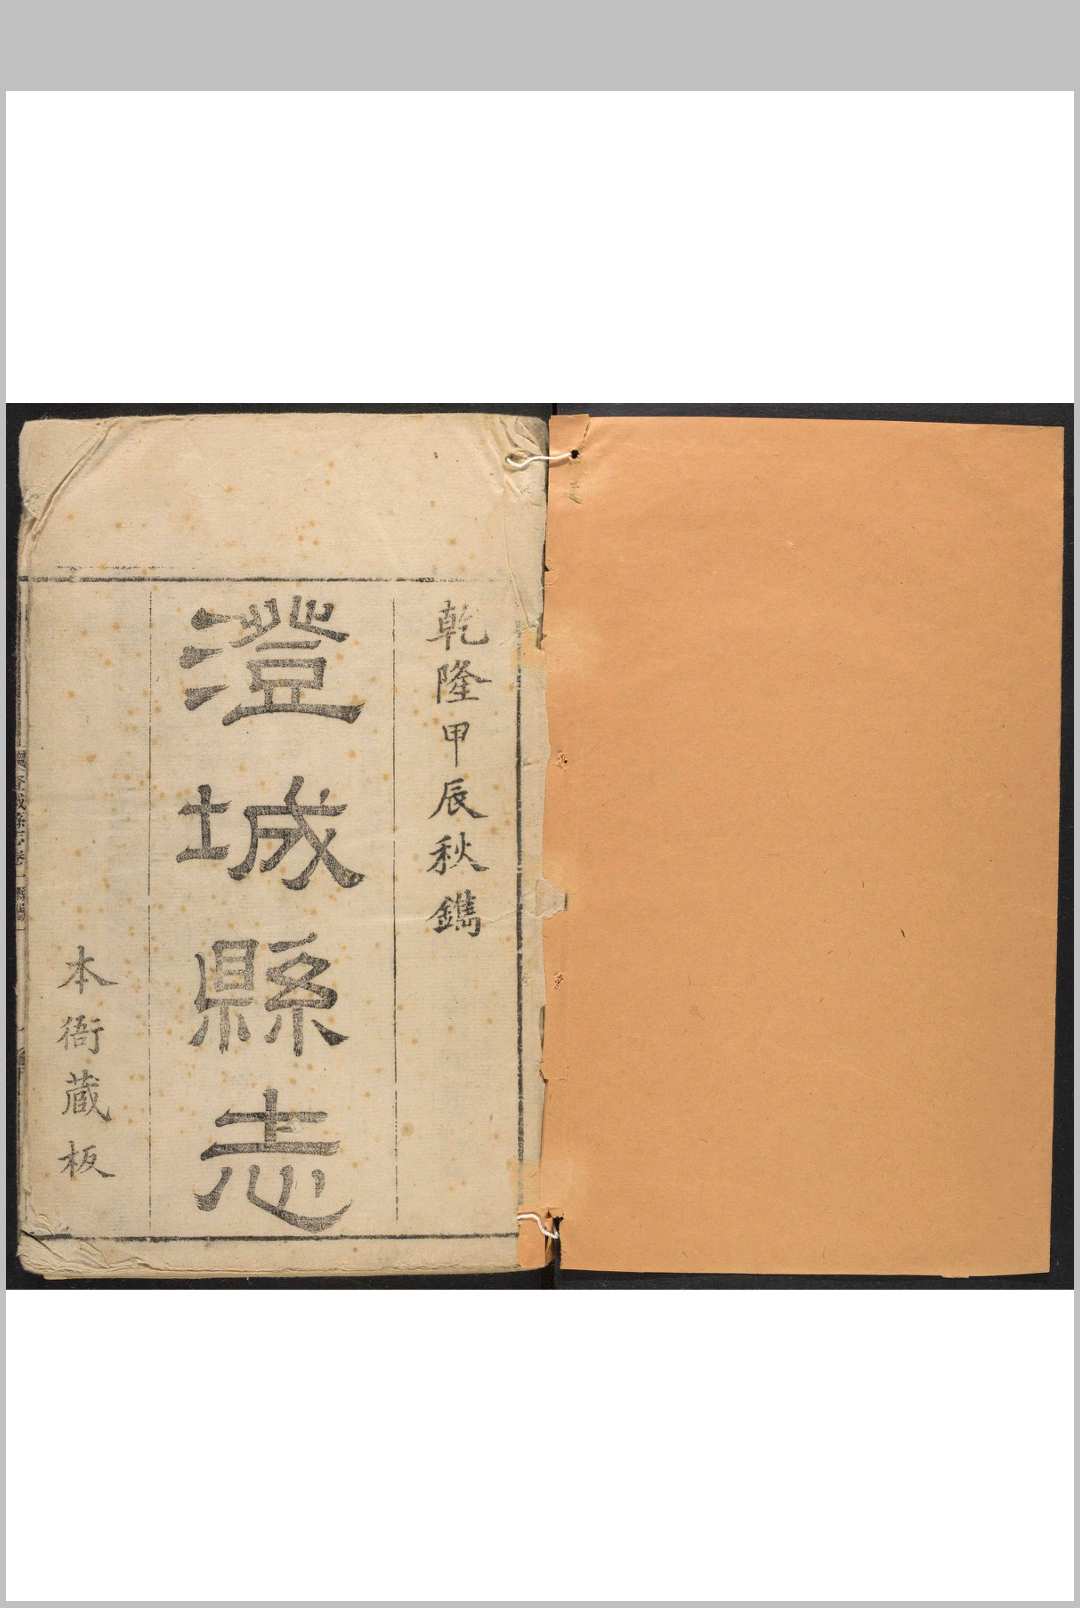 乾隆甲辰秋鐫
澄城縣志
本衙藏板